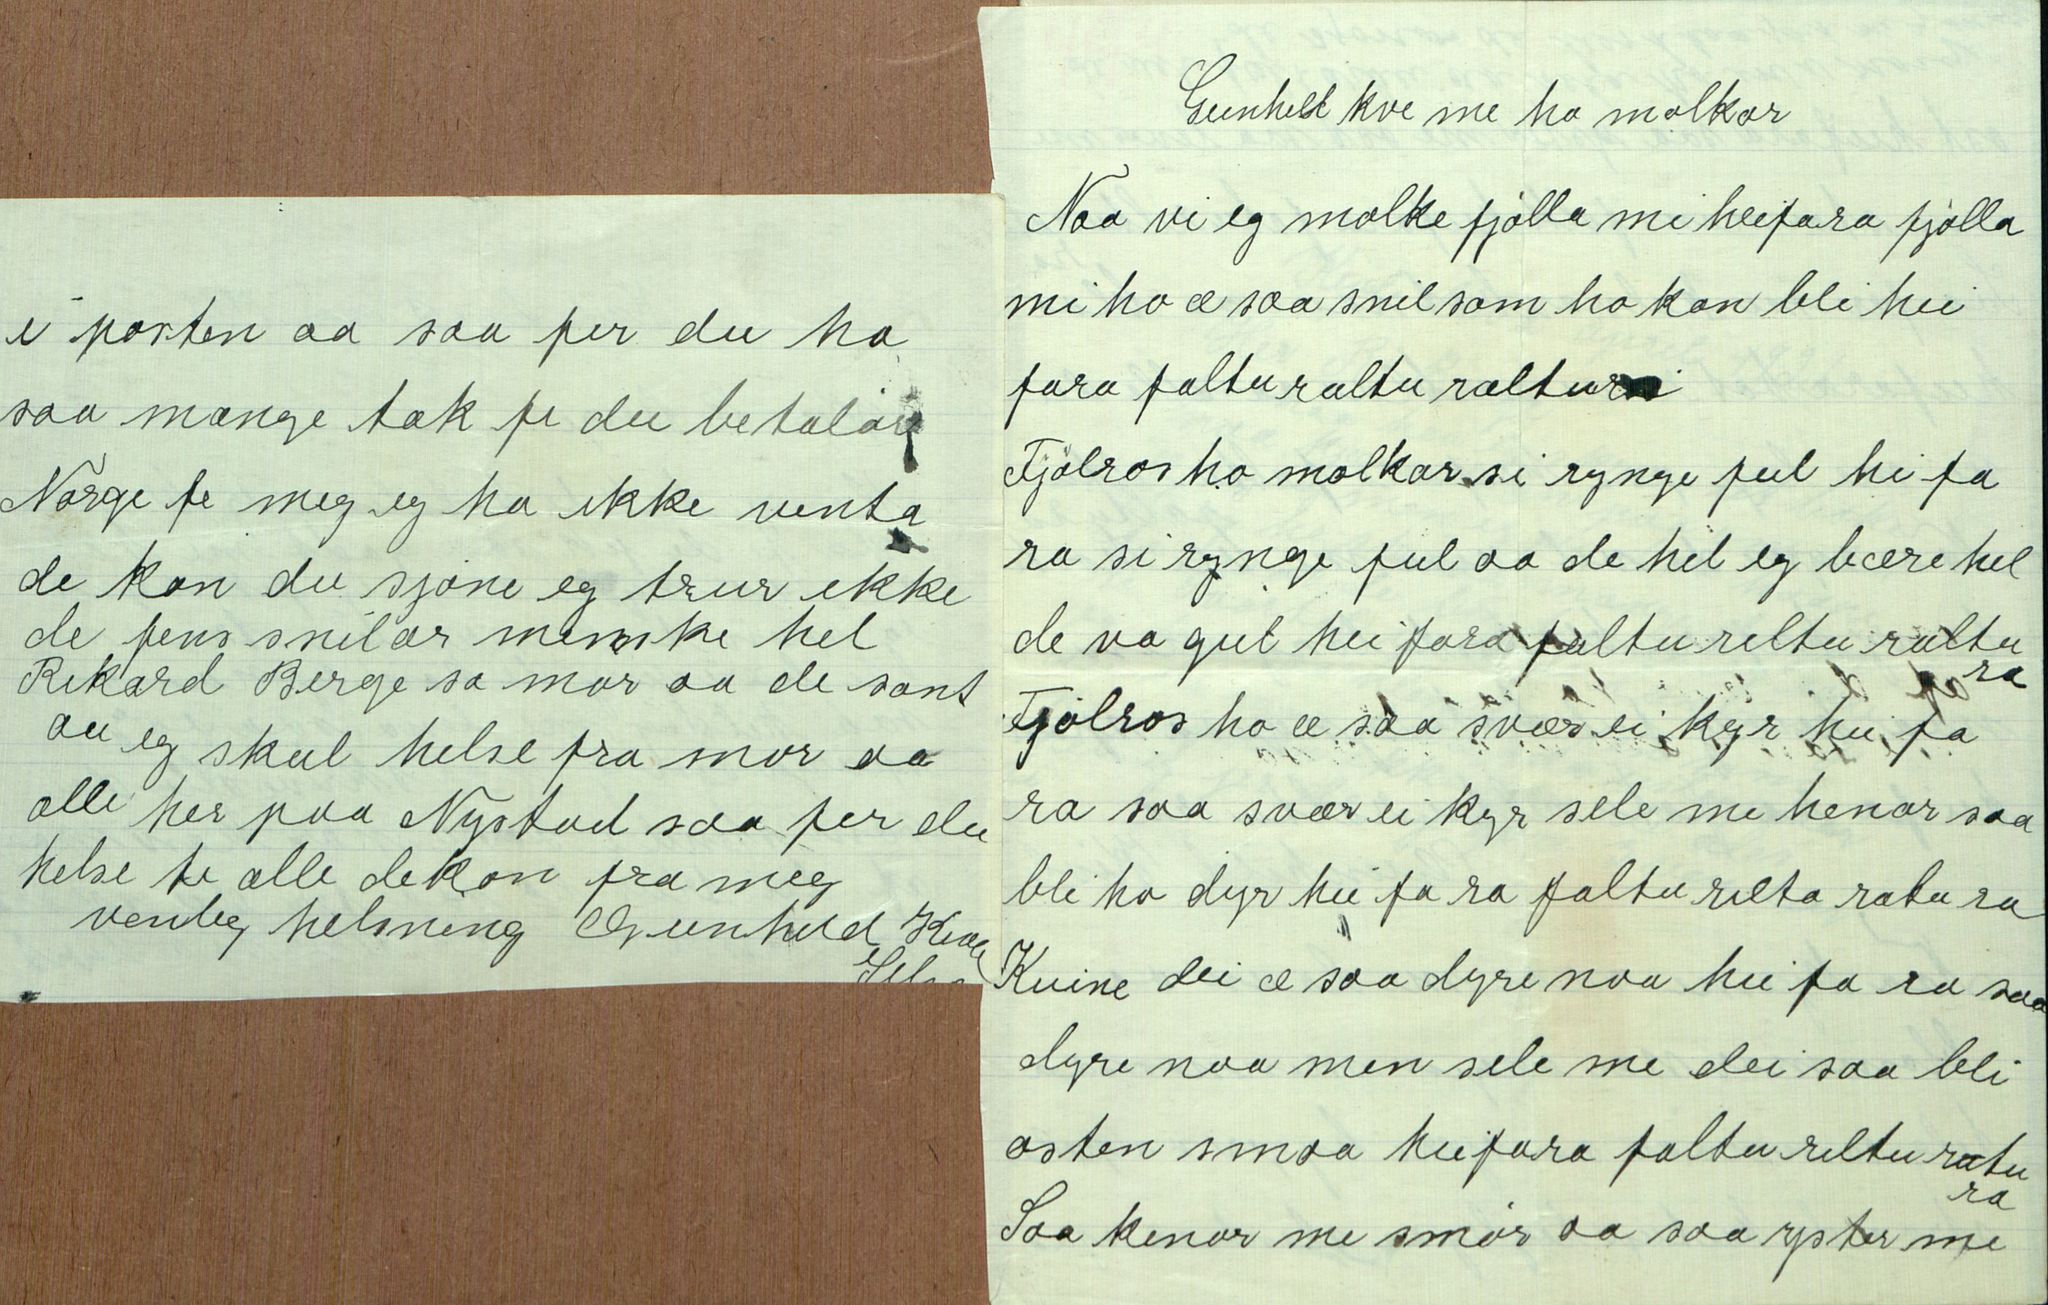 i posten aa saa fer du ha
saa mange tak fe du betalar
Norge fe meg eg ha ikke venta
de kan du sjøne eg trur ikke
de fens snilar menske hel
Rikard Berge sa mor aa de sant
au eg skul helse fra mor aa
alle her paa Nystad saa fer du
helse te alle dekan fra meg
venleg helsning Gunhild
Gunhild kve me ho molkar
Naa vi eg molke fjølla mi heifara fjølla
mi ho æ saa snil som ho kan bli hei
fara faltu raltu raltu
Fjølros ho molkar si rynge ful hi fa
ra si rynge ful aa de hel eg bære hel
de va gul hei fara faltu reltu raltu
ra
Fjølros ho æ saa svær ei kyr hei fa
ra saa svær ei kyr sele me henar saa
bli ho dyr hei fa ra faltu relta ratu ra
Kuine dei æ saa dyre naa hei fa ra saa
dyre naa men sele me dei saa bli
osten smaa heifara faltu reltu ratu
ra
Saa kenar me smør aa saa yster me